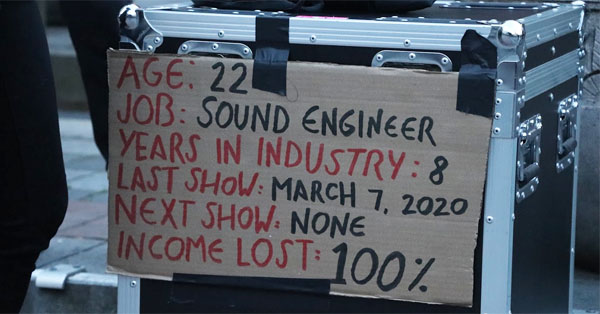 AGE: 22
JOB: SOUND ENGINEER
YEARS IN INDUSTRY: 8
LAST SHOW: MARCH 7, 2020
NEXT SHOW: NONE
INCOME LOST: 100%